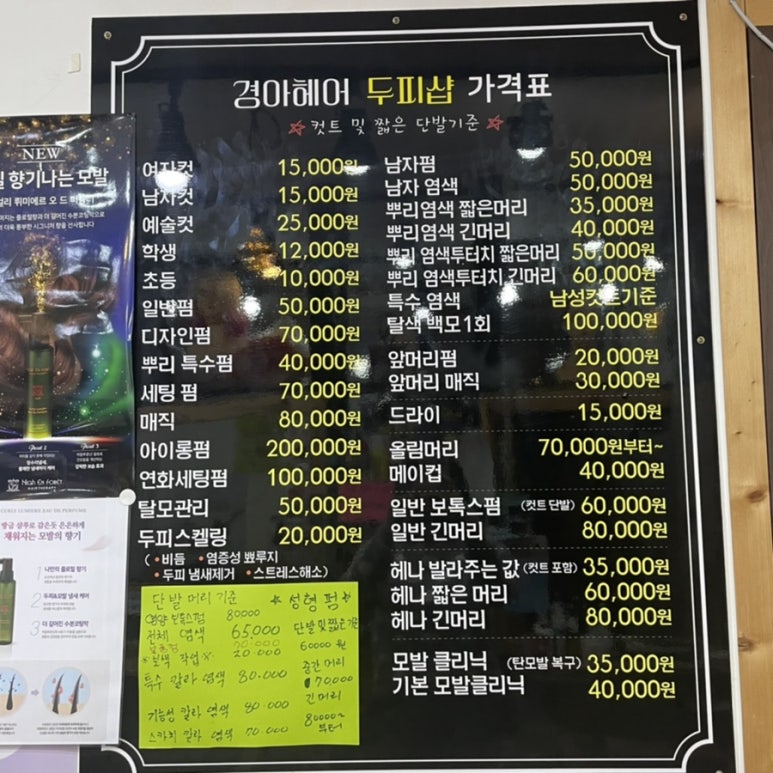 경아헤어 두피샵 가격표
컷트 및 짧은 단발기준
여자컷 15,000원
남자컷 15,000원
예술컷 25,000원
학생 12,000원
초등 10,000원
일반펌 50,000원
디자인펌 70,000원
뿌리 특수펌 40,000원
세팅 펌 70,000원
매직 80,000원
아이롱펌 200,000원
연화세팅펌 100,000원
탈모관리 50,000원
두피스켈링 20,000원
( • 비듬 • 염증성 뾰루지
• 두피 냄새제거 • 스트레스해소)
남자펌 50,000원
남자 염색 50,000원
뿌리염색 짧은머리 35,000원
뿌리염색 긴머리 40,000원
뿌리 염색투터치 짧은머리 50,000원
뿌리 염색투터치 긴머리 60,000원
특수 염색 남성컷트기준
탈색 백모1회 100,000원
앞머리펌 20,000원
앞머리 매직 30,000원
드라이 15,000원
올림머리 70,000원부터~
메이컵 40,000원
일반 보톡스펌 (컷트 단발) 60,000원
일반 긴머리 80,000원
헤나 발라주는 값 (컷트 포함) 35,000원
헤나 짧은 머리 60,000원
헤나 긴머리 80,000원
모발 클리닉 (탄모발 복구) 35,000원
기본 모발클리닉 40,000원
단발 머리 기준
영양 보톡스펌 80000
전체 염색 65,000
20.000
특수 칼라 염색 80.000
기능성 칼라 염색 80.000
스카치 칼라 염색 70.000
★ 성형 펌 ★
단발 및 짧은 기준
60000 원
중간 머리
70000
긴머리
80000~
부터
NEW
향기나는 모발
Point 2
Point 3
HIGH EN FORET
CURLY LUMIERE EAU DE PERFUME
채워지는 모발의 향기
1 나만의 플로럴 향기
2 두피&모발 냄새 케어
3 더 길어진 수분코팅막